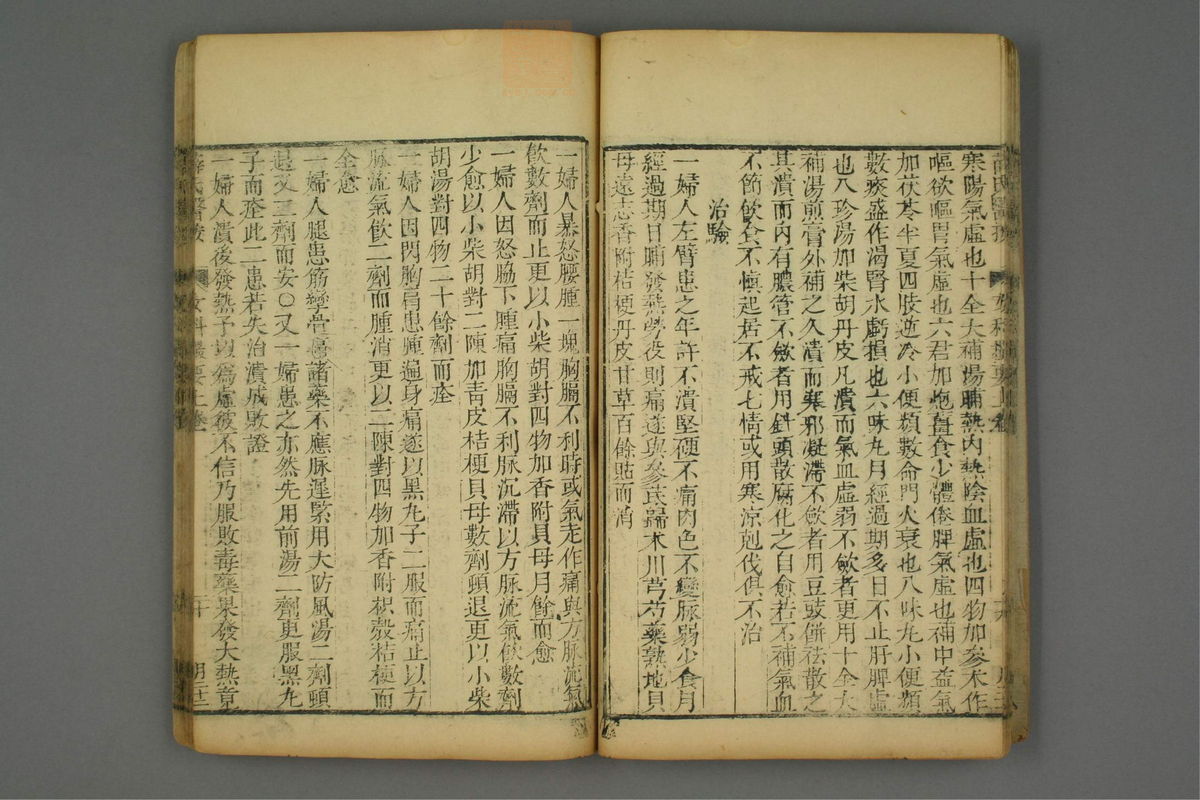 寒陽氣虛也十全大補場晡熱內熱陰血虛也四物加參术作
嘔欲嘔胃氣虛也六君加炮薑食少體倦脾氣虛也補中益氣
加茯苓半夏四肢逆冷小便頻數命門火衰也八味丸小便頻
數痰盛作渴腎水虧損也六味丸月經過期多日不止肝脾虛
也八珍湯加柴胡丹皮凡潰而氣血虛弱不斂者更用十全大
補湯煎膏外補之久潰而寒邪凝滯不斂者用豆豉餅祛散之
其潰而內有膿管不斂者用針頭散腐化之自愈若不補氣血
不節飲食不慎起居不戒七情或用寒涼剋伐俱不治
治驗
一婦人左臂患之年許不潰堅硬不痛肉色不變脉弱少食月
經過期日晡發熱勞役則痛遂與參芪歸术川芎芍藥熟地貝
母遠志香附桔梗丹皮甘草百餘貼而消
一婦人暴怒腰腫一塊胸膈不利時或氣走作痛與方脉流氣
飲數劑而止更以小柴胡對四物加香附貝母月餘而愈
一婦人因怒脇下腫痛胸膈不利脉沉滯以方脉流氣飲數劑
少愈以小柴胡對二陳加靑皮桔梗貝母數劑頓退更以小柴
胡湯對四物二十餘劑而痊
一婦人因閃胸肩患腫遍身痛遂以黑丸子二服而痛止以方
脉流氣飲二劑而腫消更以二陳對四物加香附枳殼桔梗而
全愈
一婦人腿患筋攣骨痛諸藥不應脉遲緊用大防風湯二劑頓
退又二劑而安○又一婦患之亦然先用前湯二劑更服黑丸
子而痊此二患若失治潰成敗證
一婦人潰後發熱予以爲虛彼不信乃服敗毒藥果發大熱竟
薛氏醫按
女科撮要上卷
二十